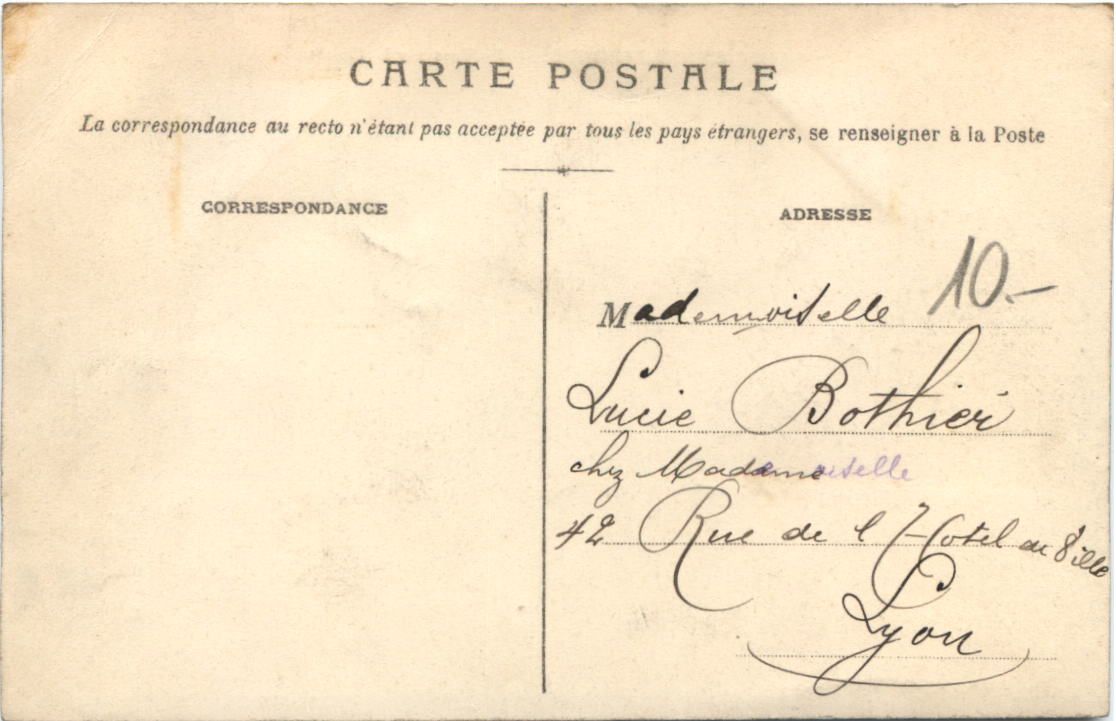 CARTE POSTALE
La correspondance au recto n'étant pas acceptée par tous les pays étrangers, se renseigner à la Poste
CORRESPONDANCE
ADRESSE
10.-
Mademoiselle
Lucie Bothier
chez Madame
42 Rue de l Hotel de Ville
Lyon